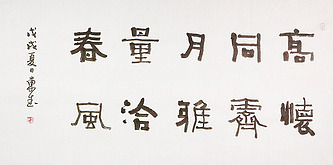 高懷
同霽
月雅
量洽
春風
戊戌夏日